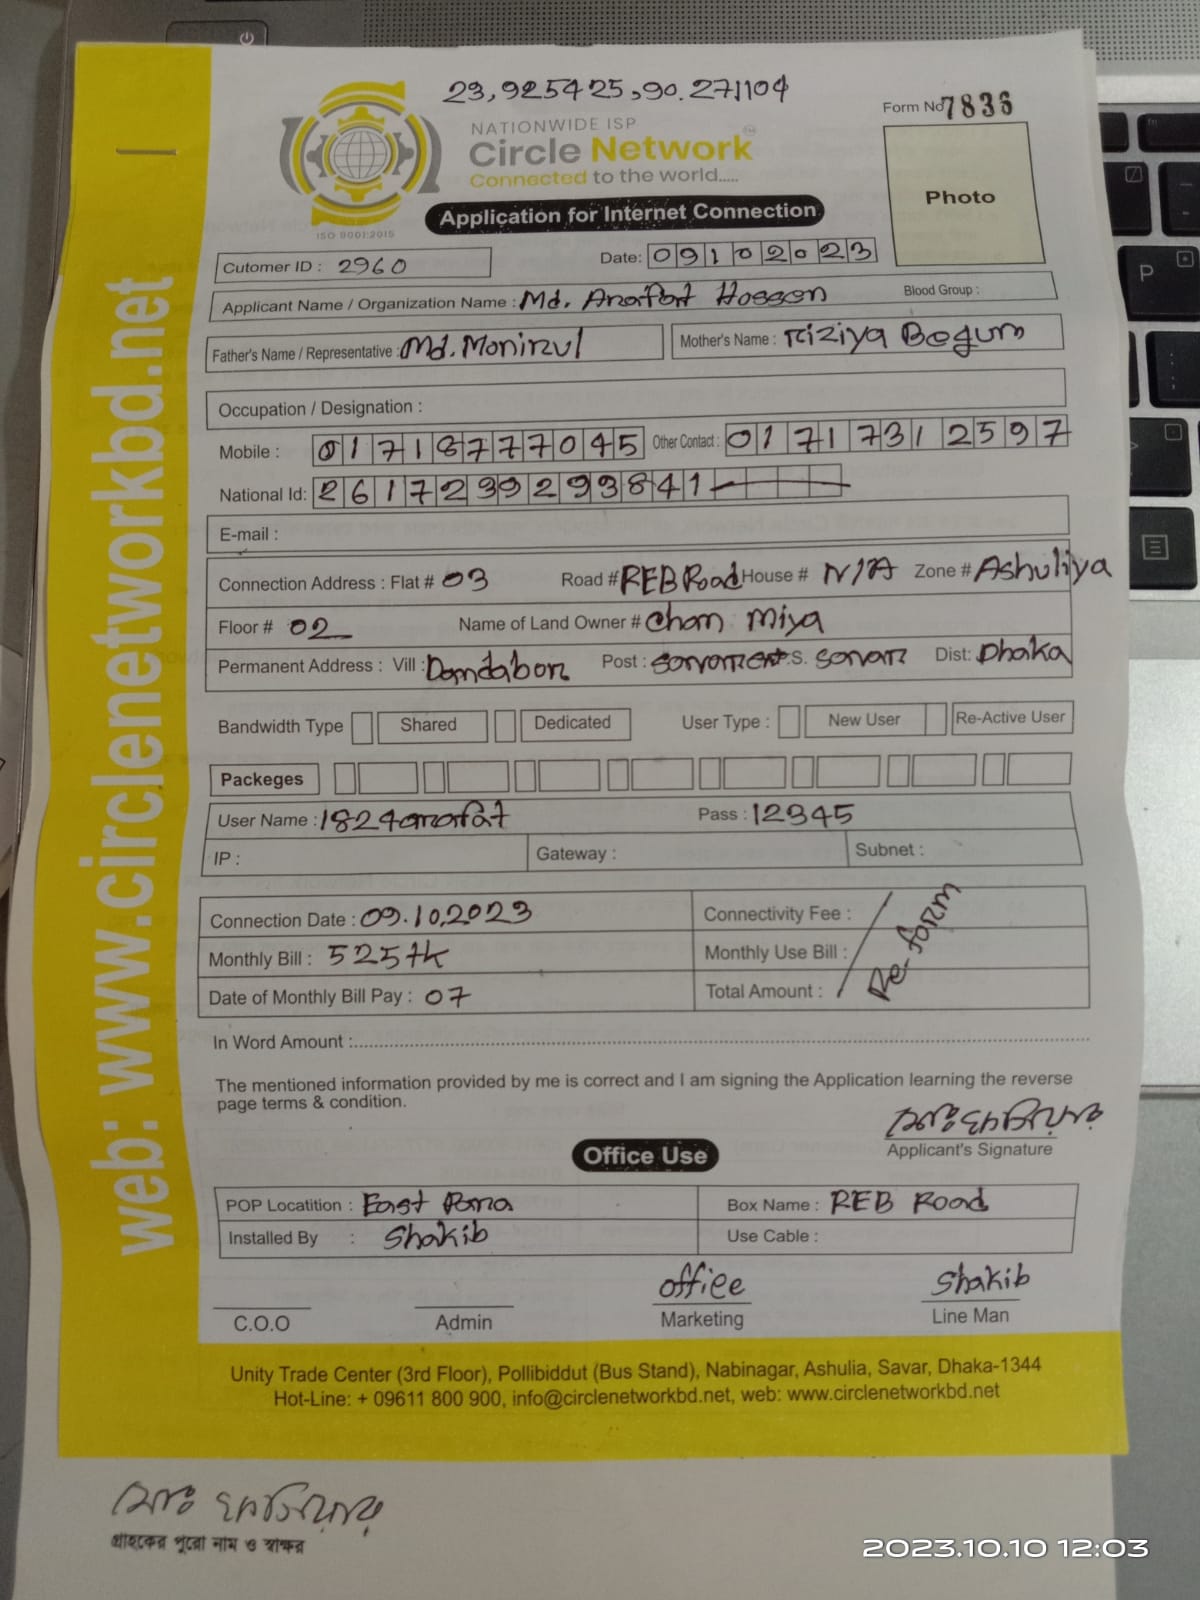 23,925425,90.271104
Form No 7836
NATIONWIDE ISP
Circle Network
Connected to the world.....
ISO 9001:2015
Application for Internet Connection
Photo
Cutomer ID : 2960
Date: 09102023
Applicant Name / Organization Name : Md. Arafart Hossen Blood Group :
Father's Name / Representative : Md. Monirul
Mother's Name : Riziya Begum
Occupation / Designation :
Mobile : 01718777045 Other Contact : 01717312597
National Id: 2617239293841
E-mail :
Connection Address : Flat # 03 Road # REB Road House # N/A Zone # Ashuliya
Floor # 02 Name of Land Owner # Chan Miya
Permanent Address : Vill : Dendabor Post : P.S. Savar Dist: Dhaka
Bandwidth Type Shared Dedicated User Type : New User Re-Active User
Packeges
User Name : 1824arafat Pass : 12345
IP : Gateway : Subnet :
Connection Date : 09.10.2023 Connectivity Fee :
Monthly Bill : 525 tk Monthly Use Bill :
Date of Monthly Bill Pay : 07 Total Amount :
Re-form
In Word Amount :
The mentioned information provided by me is correct and I am signing the Application learning the reverse
page terms & condition.
Applicant's Signature
Office Use
POP Locatition : East Box Name : REB Road
Installed By : Shakib Use Cable :
office Shakib
C.O.O Admin Marketing Line Man
Unity Trade Center (3rd Floor), Pollibiddut (Bus Stand), Nabinagar, Ashulia, Savar, Dhaka-1344
Hot-Line: + 09611 800 900, info@circlenetworkbd.net, web: www.circlenetworkbd.net
web: www.circlenetworkbd.net
মোঃ
গ্রাহকের পুরো নাম ও স্বাক্ষর
2023.10.10 12:03